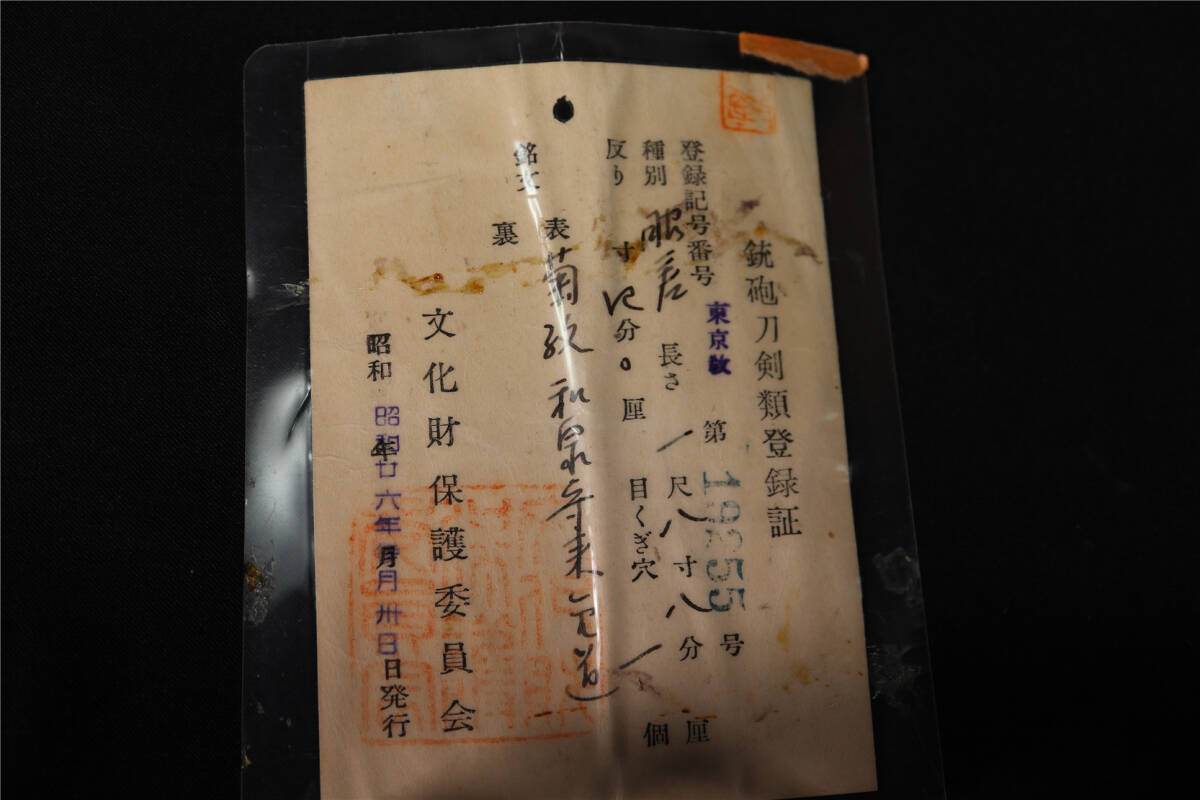 銃砲刀剣類登録証
登録記号番号 東京教 第19255号
種別 脇差 長さ 一尺八寸八分 厘
反り 寸 四分 〇厘 目くぎ穴 一個
銘文
表 菊紋 和泉守来金道
裏
文化財保護委員会
昭和 年 月 日発行
昭和廿六年 月卅日